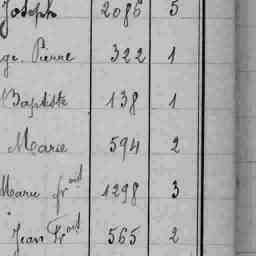 Joseph 2086 5
ge Pierre 322 1
Baptiste 138 1
Marie 594 2
Marie fr.oise 1298 3
Jean Fr.ois 565 2